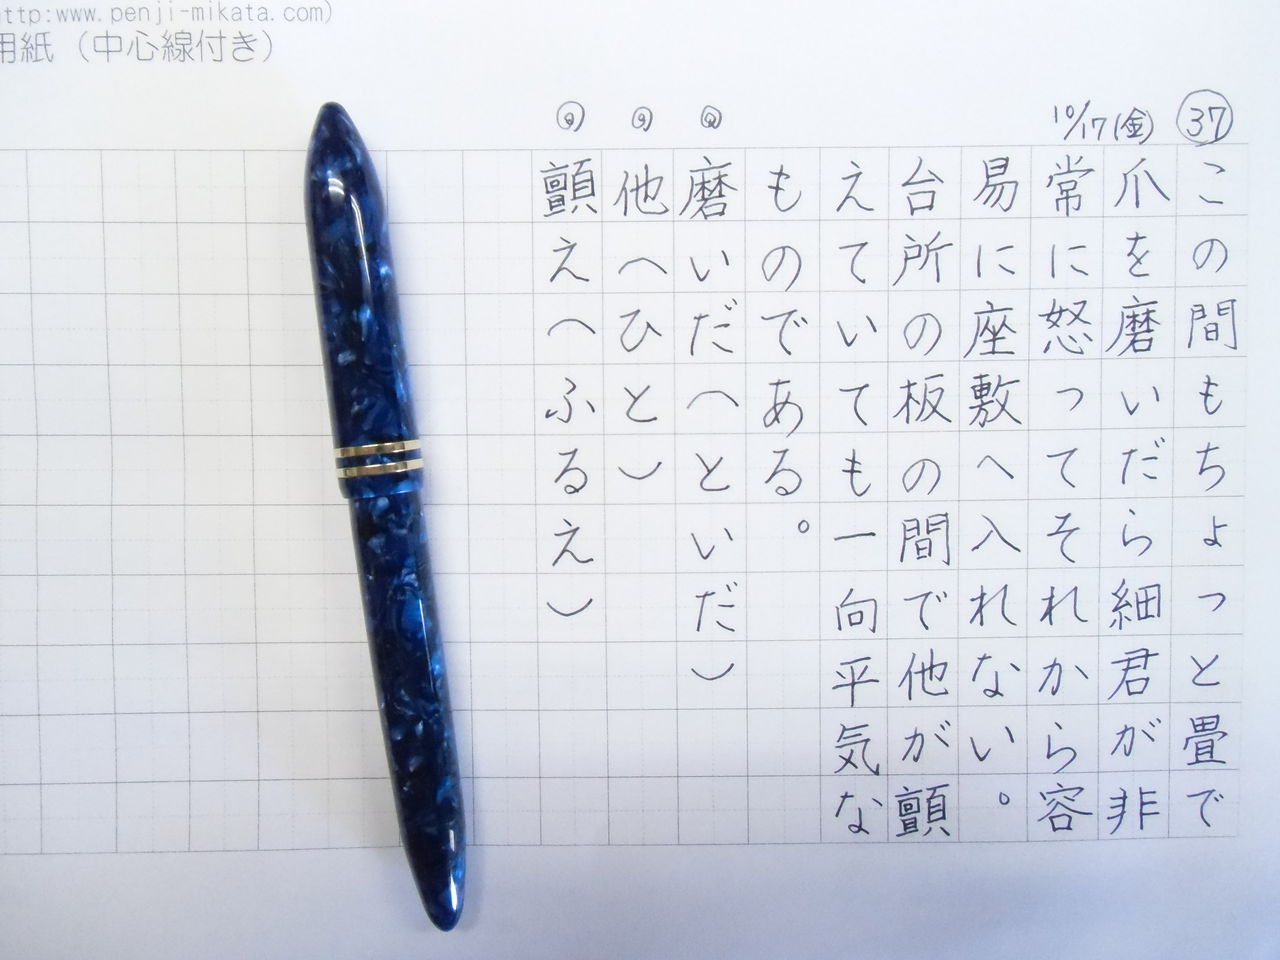 ttp:www.penji-mikata.com)
用紙（中心線付き）
㊲
10/17(金)
この間もちょっと畳で
爪を磨いだら細君が非
常に怒ってそれから容
易に座敷へ入れない。
台所の板の間で他が顫
えていても一向平気な
ものである。
磨いだ（といだ）
他（ひと）
顫え（ふるえ）